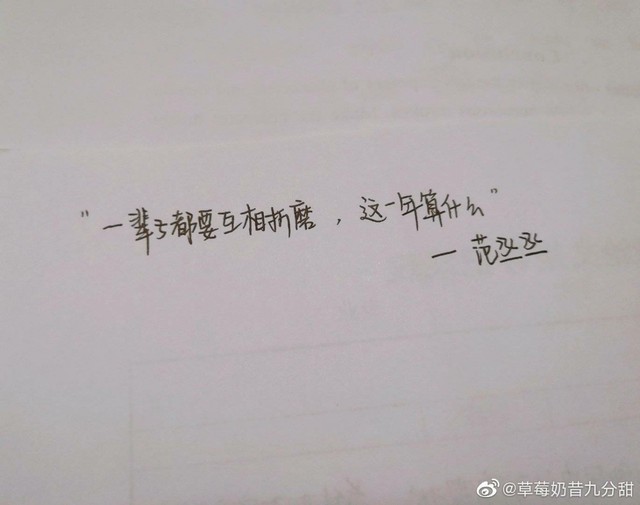 "一辈子都要互相折磨，这一年算什么"
— 范丞丞
@草莓奶昔九分甜